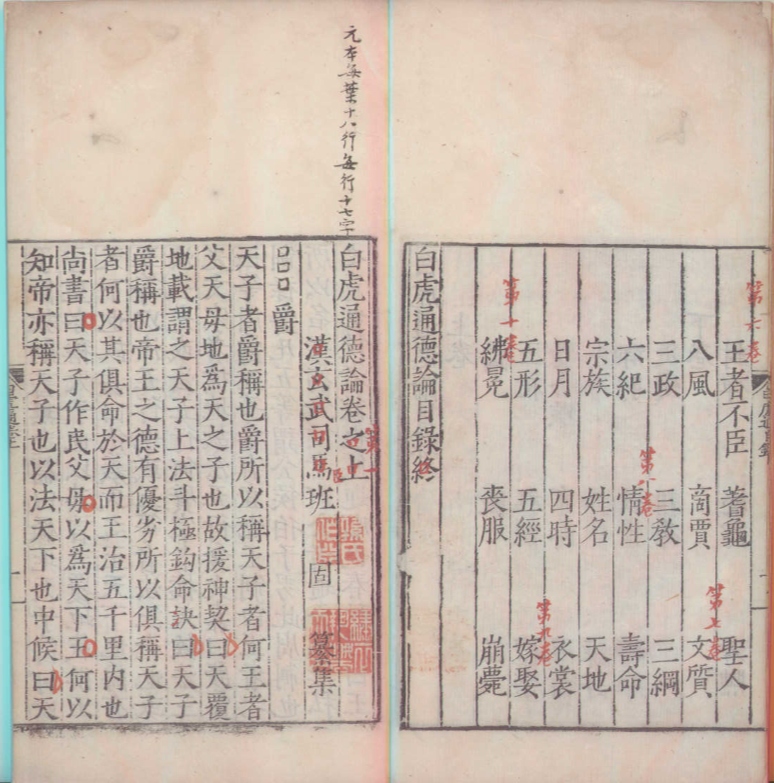 第六卷
王者不臣 蓍龜 聖人
第七卷
八風 商賈 文質
三政 三教 三綱
第八卷
六紀 情性 壽命
宗族 姓名 天地
日月 四時 衣裳
第九卷
五形 五經 嫁娶
第十卷
紼冕 喪服 崩薨
白虎通德論目錄終
元本每葉十八行每行十七字
白虎通德論卷之上
第一
漢玄武司馬班固纂集
臣
爵
天子者爵稱也爵所以稱天子者何王者
父天毋地爲天之子也故援神契曰天覆
地載謂之天子上法斗極鈎命訣曰天子
爵稱也帝王之德有優劣所以俱稱天子
者何以其俱命於天而王治五千里内也
尚書曰天子作民父毋以爲天下王何以
知帝亦稱天子也以法天下也中候曰天